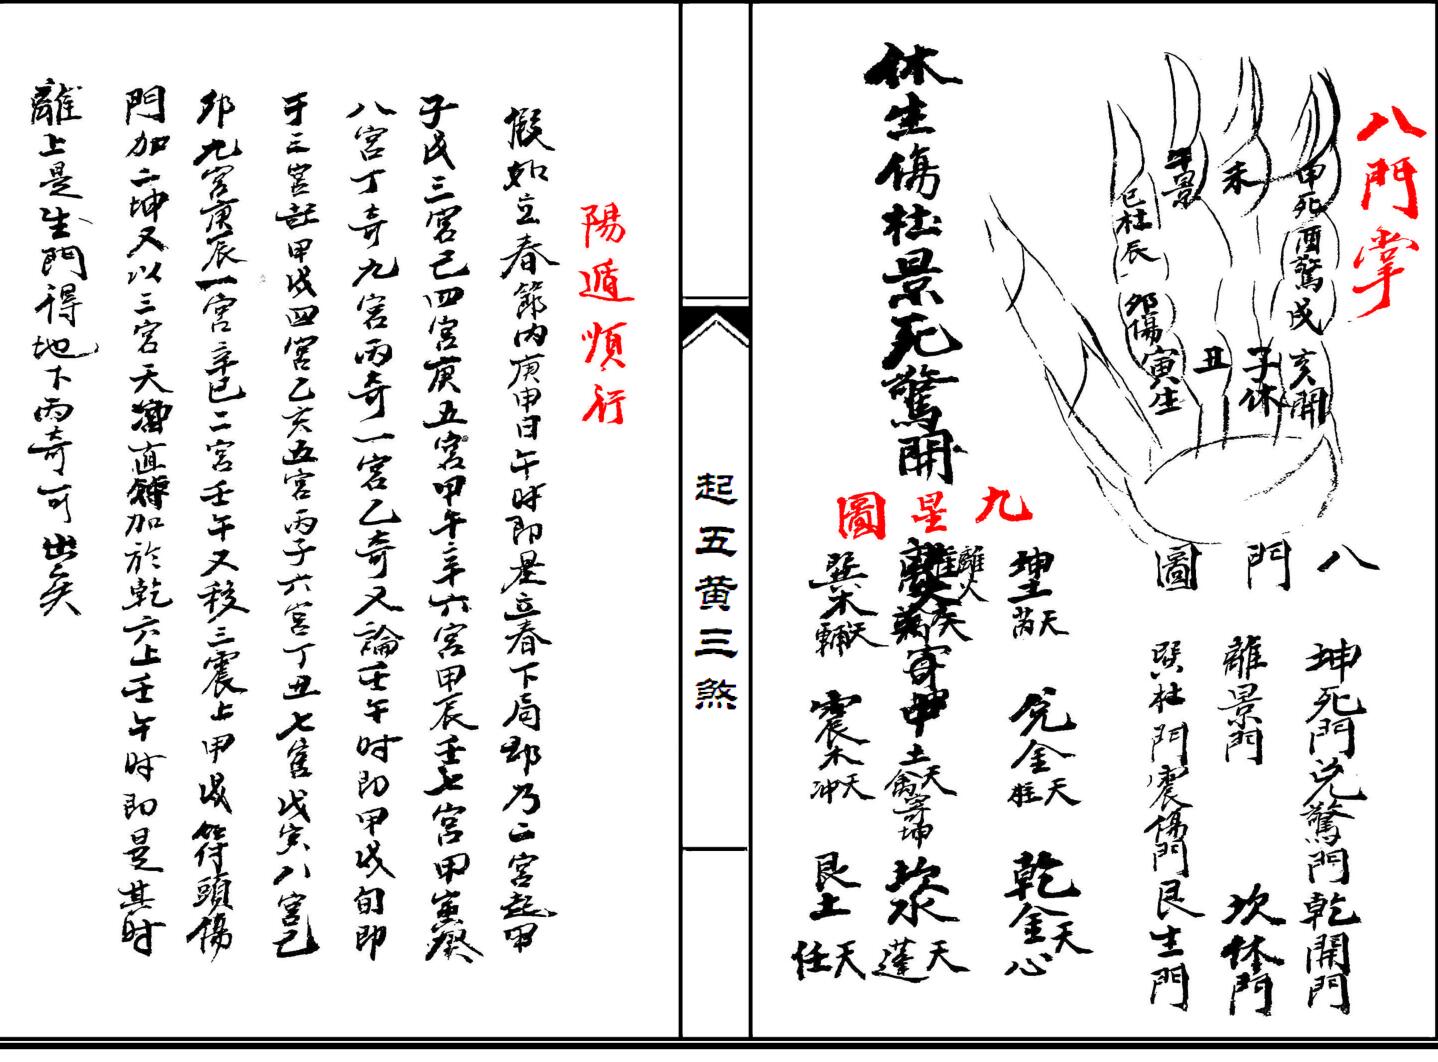 八門掌
申死酉驚戌
亥開
未
子休
午景
丑
巳杜辰
卯傷
寅生
休生傷杜景死驚開
八門圖
坤死門兌驚門乾開門
離景門
坎休門
巽杜門震傷門艮生門
九星圖
坤土天芮
兌金天柱
乾金天心
離火
寄中土天禽寄坤
坎水天蓬
巽木天輔
震木天冲
艮土天任
起五黃三煞
陽遁順行
假如立春節內庚申日午時即是立春下局郡乃二宮起甲
子戊三宮己四宮庚五宮甲午辛六宮甲辰壬七宮甲寅癸
八宮丁奇九宮丙奇一宮乙奇又論壬午时即甲戌旬即
于三宮起甲戌四宮乙亥五宮丙子六宮丁丑七宮戊寅八宮己
卯九宮庚辰一宮辛巳二宮壬午又移三震上甲戌符頭傷
門加二坤又以三宮天冲直符加於乾六上壬午时即是其时
離上是生門得地下丙奇可出矣